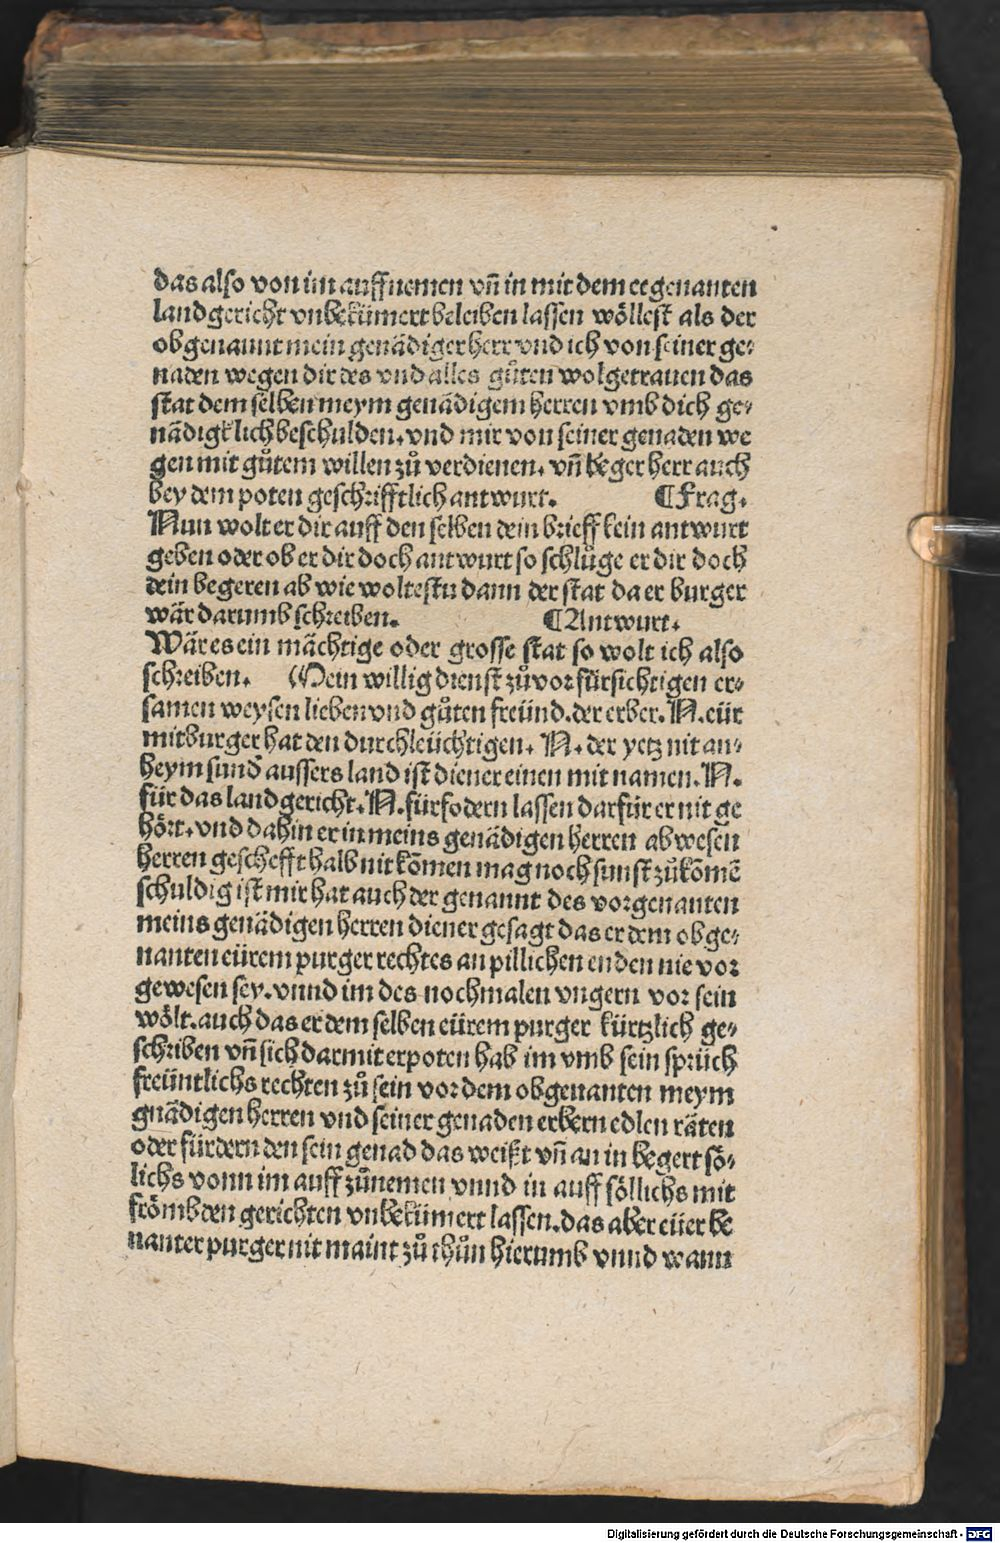 das also von im auffnemen vn̄ in mit dem eegenanten
landgericht vnbekümert beleiben lassen wöllest als der
obgenannt mein genädiger herr vnd ich von seiner ge⸗
naden wegen dir des vnd alles gůten wolgetrauen das
stat dem selben meym genädigem herren vmb dich ge⸗
nädigklich beschulden. vnd mir von seiner genaden we
gen mit gůtem willen zů verdienen. vn̄ beger herr auch
bey dem poten geschrifftlich antwurt. ¶Frag.
Nun wolt er dir auff den selben dein brieff kein antwurt
geben oder ob er dir doch antwurt so schlůge er dir doch
dein begeren ab wie woltestu dann der stat da er burger
wär darumb schreiben. ¶Antwurt.
Wär es ein mächtige oder grosse stat so wolt ich also
schreiben. Mein willig dienst zůvor fürsichtigen er⸗
samen weysen lieben vnd gůten freünd. der erber. N. eür
mitburger hat den durchleüchtigen. N. der yetz nit an⸗
heym sund̄ aussers land ist diener einen mit namen. N.
für das landgericht. N. fürfodern lassen darfür er nit ge
hört. vnd dahin er in meins genädigen herren abwesen
herren geschefft halb nit kōmen mag noch sunst zůkōmē
schuldig ist mir hat auch der genannt des vorgenanten
meins genädigen herren diener gesagt das er dem obge⸗
nanten eürem purger rechtes an pillichen enden nie vor
gewesen sey. vnnd im des nochmalen vngern vor sein
wölt. auch das er dem selben eürem purger kürtzlich ge⸗
schriben vn̄ sich darmit erpoten hab im vmb sein sprüch
freüntlichs rechten zů sein vor dem obgenanten meym
gnädigen herren vnd seiner genaden erbern edlen räten
oder fürdern den sein genad das weißt vn̄ an in begert sö⸗
lichs vonn im auff zůnemen vnnd in auff söllichs mit
frömbden gerichten vnbekümert lassen. das aber eüer be
nanter purger nit maint zů thůn hierumb vnnd wann
Digitalisierung gefördert durch die Deutsche Forschungsgemeinschaft - DFG